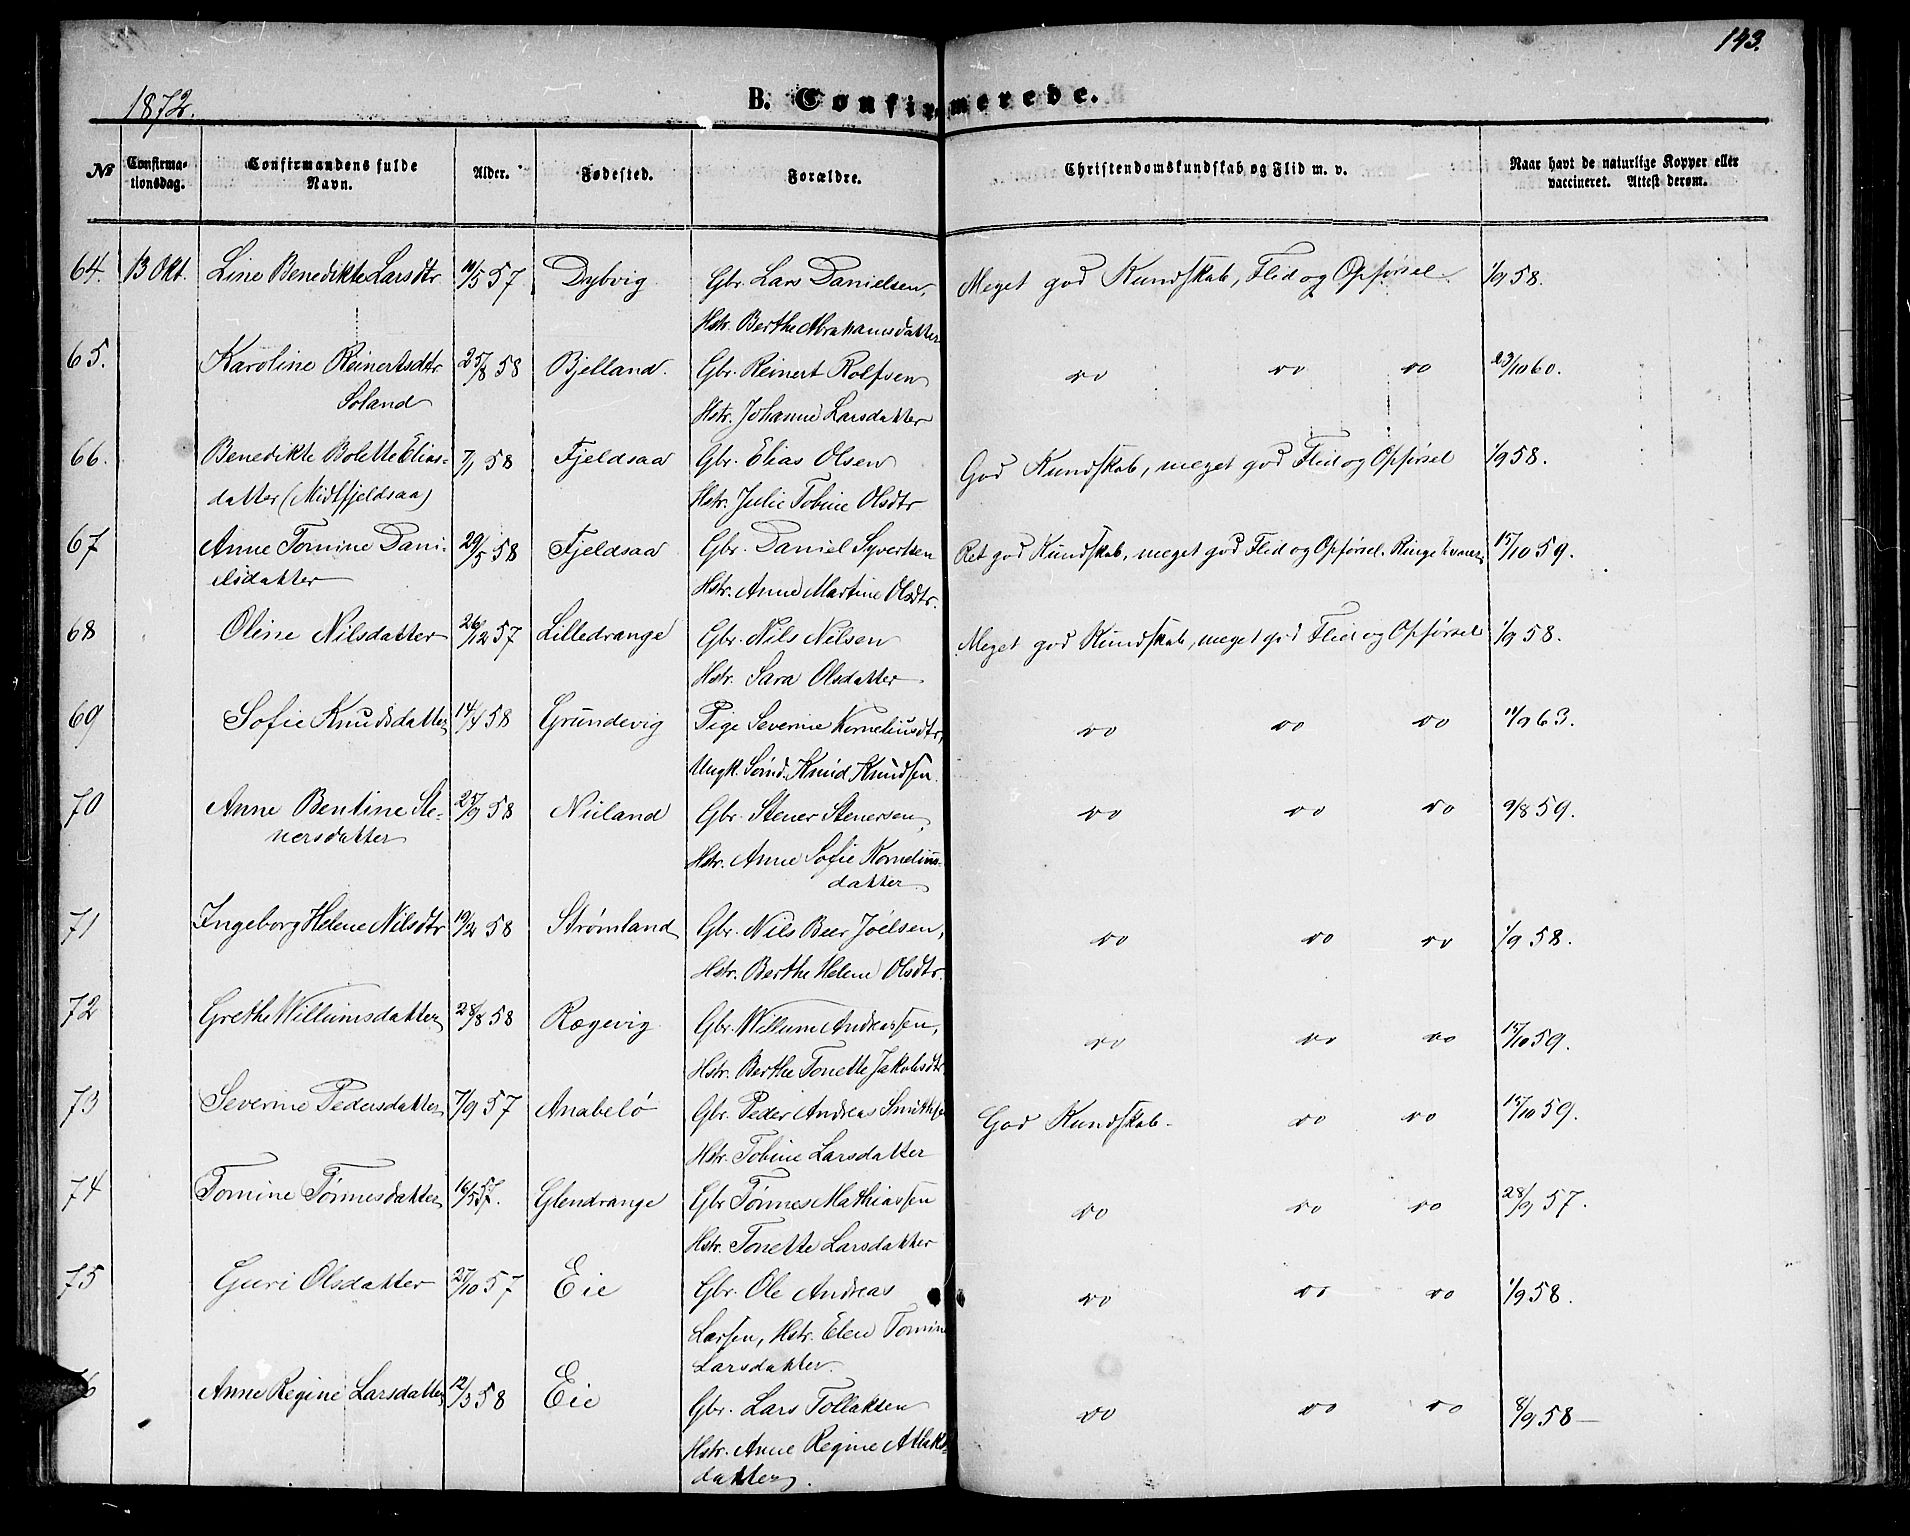 143.
1872.
B. Confirmerede.
№
Confirma-
tionsdag.
Confirmandens fulde
Navn.
Alder.
Fødested.
Forældre.
Christendomskundskab og Flid m. v.
Naar havt de naturlige Kopper eller
vaccineret. Attest derom.
64. 13 Okt. Line Benedikte Larsdtr 11/5 57 Dybvig Gbr. Lars Danielsen, Meget god Kundskab, Flid og Opførsel. 1/9 58.
Hstr. Berthe Abrahamsdatter
65. Karoline Reinertsdtr 25/8 58 Bjelland. Gbr. Reinert Rolfsen do do do 23/10 60.
Soland Hstr. Johanne Larsdatter
66. Benedikte Bolette Elias- 7/1 58 Fjeldsaa Gbr. Elias Olsen God Kundskab, meget god Flid og Opførsel 1/9 58.
datter (Midtfjeldsaa) Hstr. Julie Tobine Olsdtr
67 Anne Tomine Dani- 29/5 58 Fjeldsaa Gbr. Daniel Syvertsen Ret god Kundskab, meget god Flid og Opførsel. Ringe 15/10 59.
elsdatter Hstr. Anne Martine Olsdtr.
68 Oline Nilsdatter 26/12 57 Lilledrange Gbr. Nils Nilsen Meget god Kundskab, meget god Flid og Opførsel 1/9 58.
Hstr. Sara Olsdatter
69 Sofie Knudsdatter 14/4 58 Grundevig Pige Severine Korneliusdtr, do do do 11/9 63.
Ungk. Sømd. Knud Knudsen.
70 Anne Bentine Ste- 25/9 58 Nuland Gbr. Stener Stenersen, do do do 9/8 59.
nersdatter Hstr. Anne Sofie Kornelius-
datter
71 Ingeborg Helene Nilsdtr 19/2 58 Strømland Gbr. Nils Beer Joelsen, do do do 1/9 58.
Hstr. Berthe Helene Olsdtr.
72 Grethe Willumsdatter 28/8 58 Rægevig Gbr. Willum Andreassen, do do do 15/10 59.
Hstr. Berthe Tonette Jakobsdtr.
73 Severine Pedersdatter 7/9 57 Anabelø Gbr. Peder Andreas God Kundskab. do do 15/10 59.
Hstr. Tobine Larsdatter
74 Tomine Tønnesdatter 16/5 57. Glendrange Gbr Tønnes Mathiassen do do do 28/9 57.
Hstr. Tonette Larsdatter
75 Guri Olsdatter 27/10 57 Eie Gbr. Ole Andreas do do do 1/9 58.
Larsen, Hstr. Elen Tomine
Larsdatter.
6 Anne Regine Larsdatter 12/3 58 Eie Gbr. Lars Tollaksen do do do 8/9 58
Hstr. Anne Regine Atlaks-
datter.